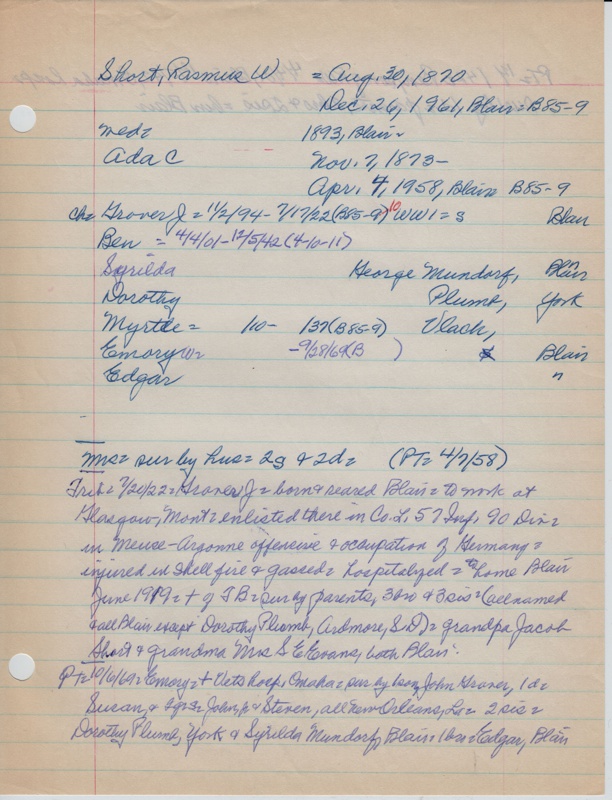 Short, Rasmus W = Aug. 30, 1870
Dec. 26, 1961, Blair = B85-9
med= 1893, Blair
Ada C Nov. 7, 1873-
Apr. 4, 1958, Blair = B85-9
ch= Grover J = 11/2/94 - 7/17/22 (B85-9) 10 WW1 = s Blair
Ben = 4/4/01 - 12/5/42 (4-10-11)
Syrilda George Mundorf, Blair
Dorothy Plumb, York
Myrtle = 110- 137 (B85-9) Vlach,
Emory W= - 9/28/69 (B ) Blair
Edgar "
Mrs= sur by hus= 2s & 2d= (PT= 4/7/58)
Trib= 7/20/22= Grover J= born & reared Blair= to work at
Glasgow, Mont= enlisted there in Co. L, 57 Inf, 90 Div=
in Meuse-Argonne offensive & occupation of Germany=
injured in shell fire & gassed= hospitalized= home Blair
June 1919= + of TB= sur by parents, 3bro & 3sis= (all named
& all Blair except Dorothy Plumb, Ardmore, S.D)= grandpa Jacob
Short & grandma Mrs S E Evans, both Blair.
PT= 10/6/69= Emory= + Vets hosp, Omaha= sur by son, John Grover, 1d=
Susan, & John, jr & Steven, all New Orleans, La= 2 sis=
Dorothy Plumb, York & Syrilda Mundorf, Blair= 1bro= Edgar, Blair